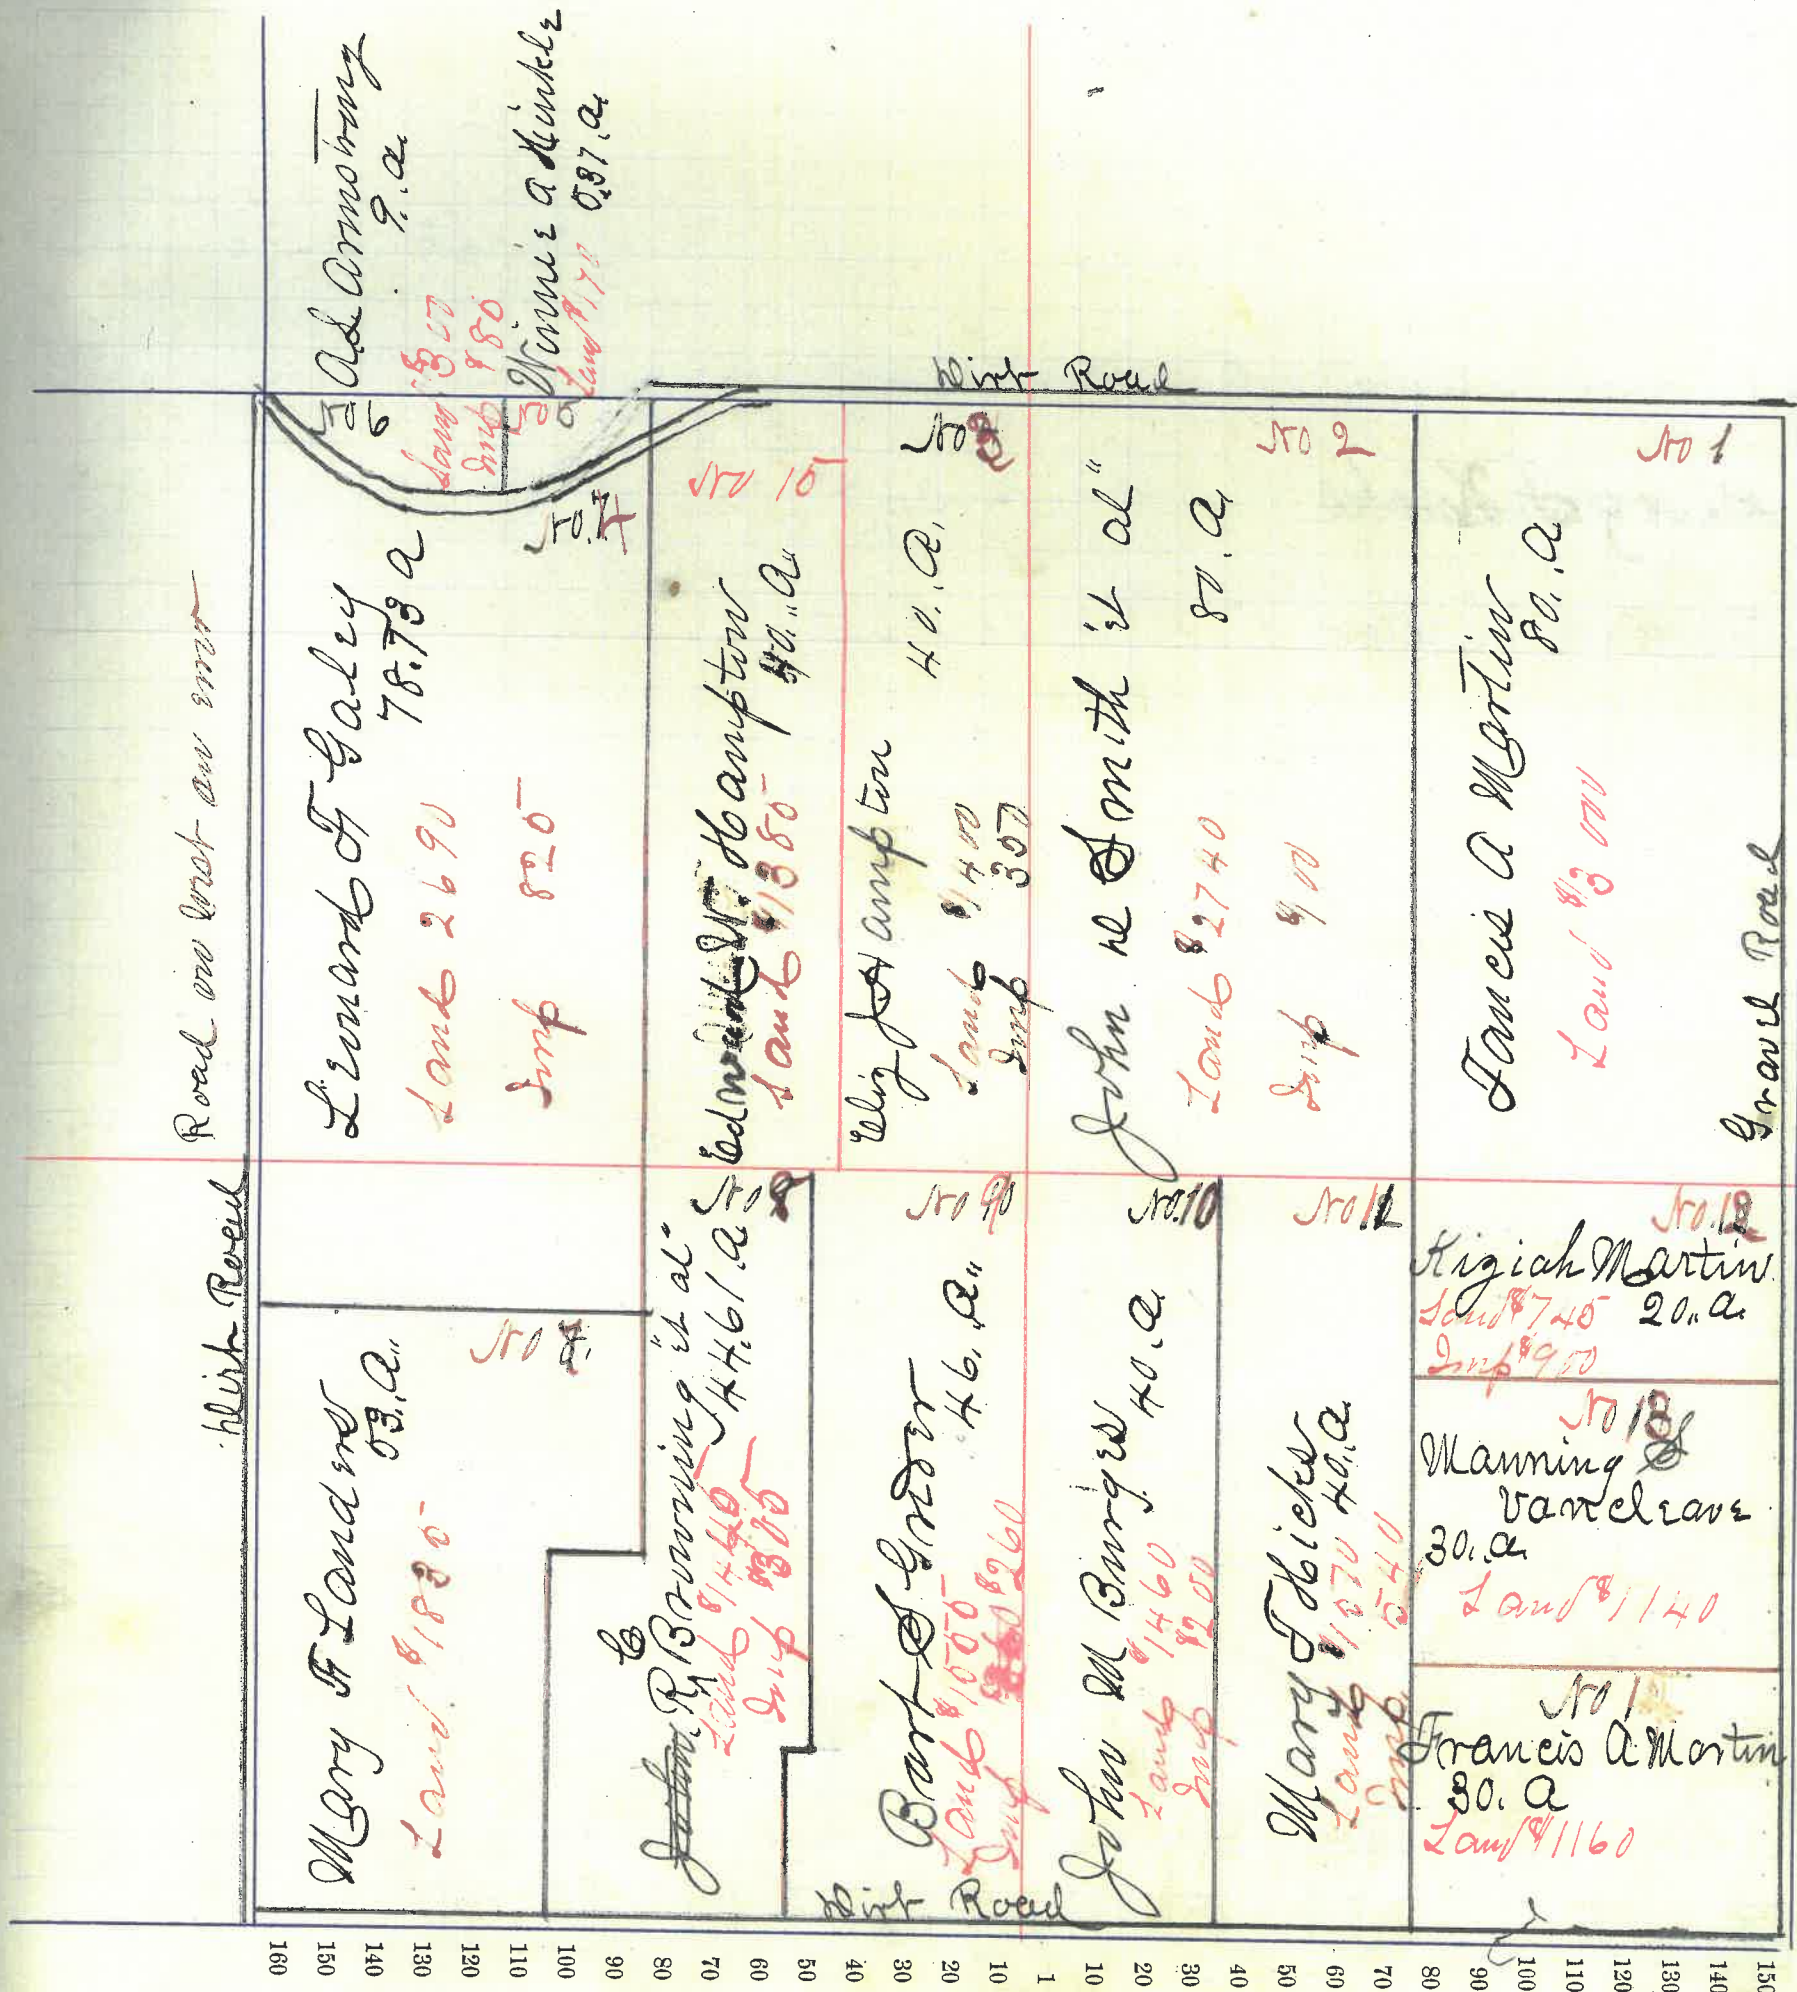 A L Armstrong
9. a.
Land $300
Imp $80
Winnie A Hinkle
5.37. a.
Land $170
Dirt Road
Road on West an error
No 6
No 5
Leonard F Galey
78.73 a
Land 2690
Imp 825
No. 7
No 15
Edward W. Hampton
40.,a"
Land $1380
No 3
Eliz J Hampton
40., a.
Land $1400
Imp 300
No 2
John H Smith "et al"
80. a.
Land $2740
Imp $100
No 1
Francis A Martin
80., a
Land $3000
Gravel Road
Dirt Road
Mary F Landers
53., a..
Land. $1835
No 8
R C Browning "et al"
44.61 a
Land $1445
Imp $305
No 9
Bart S Grider
46., a..
Land $1555
Imp $260
No. 10
John M Burges
40. a.
Land $1460
Imp $200
No 11
Mary T Hicks
40. a.
Land $1370
Imp. 540
No. 12
Kiziah Martin
Land $745 20., a.
Imp $900
No 13
Manning S
Vancleave
30., a.
Land $1140
No 1
Francis A Martin
30. a
Land $1160
Dirt Road
160 150 140 130 120 110 100 90 80 70 60 50 40 30 20 10 1 10 20 30 40 50 60 70 80 90 100 110 120 130 140 150